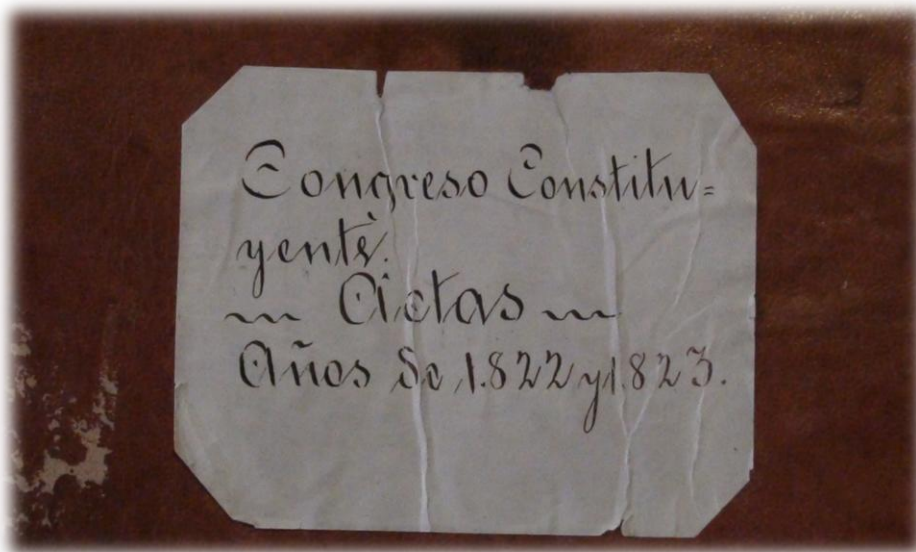 Congreso Constitu=
yente.
~ Actas ~
Años de 1.822 y 1.823.